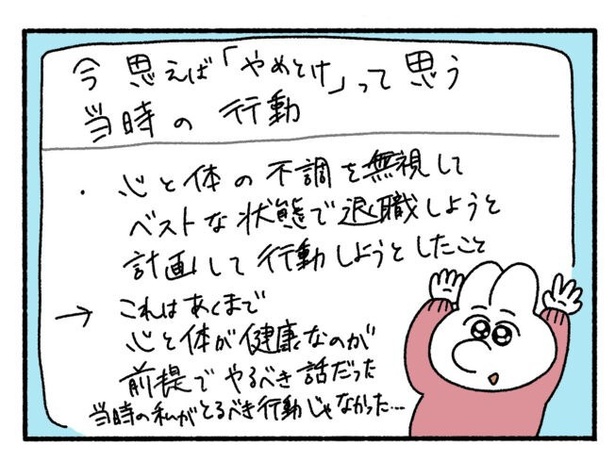 今思えば「やめとけ」って思う
当時の行動
・心と体の不調を無視して
ベストな状態で退職しようと
計画して行動しようとしたこと
→これはあくまで
心と体が健康なのが
前提でやるべき話だった
当時の私がとるべき行動じゃなかった…